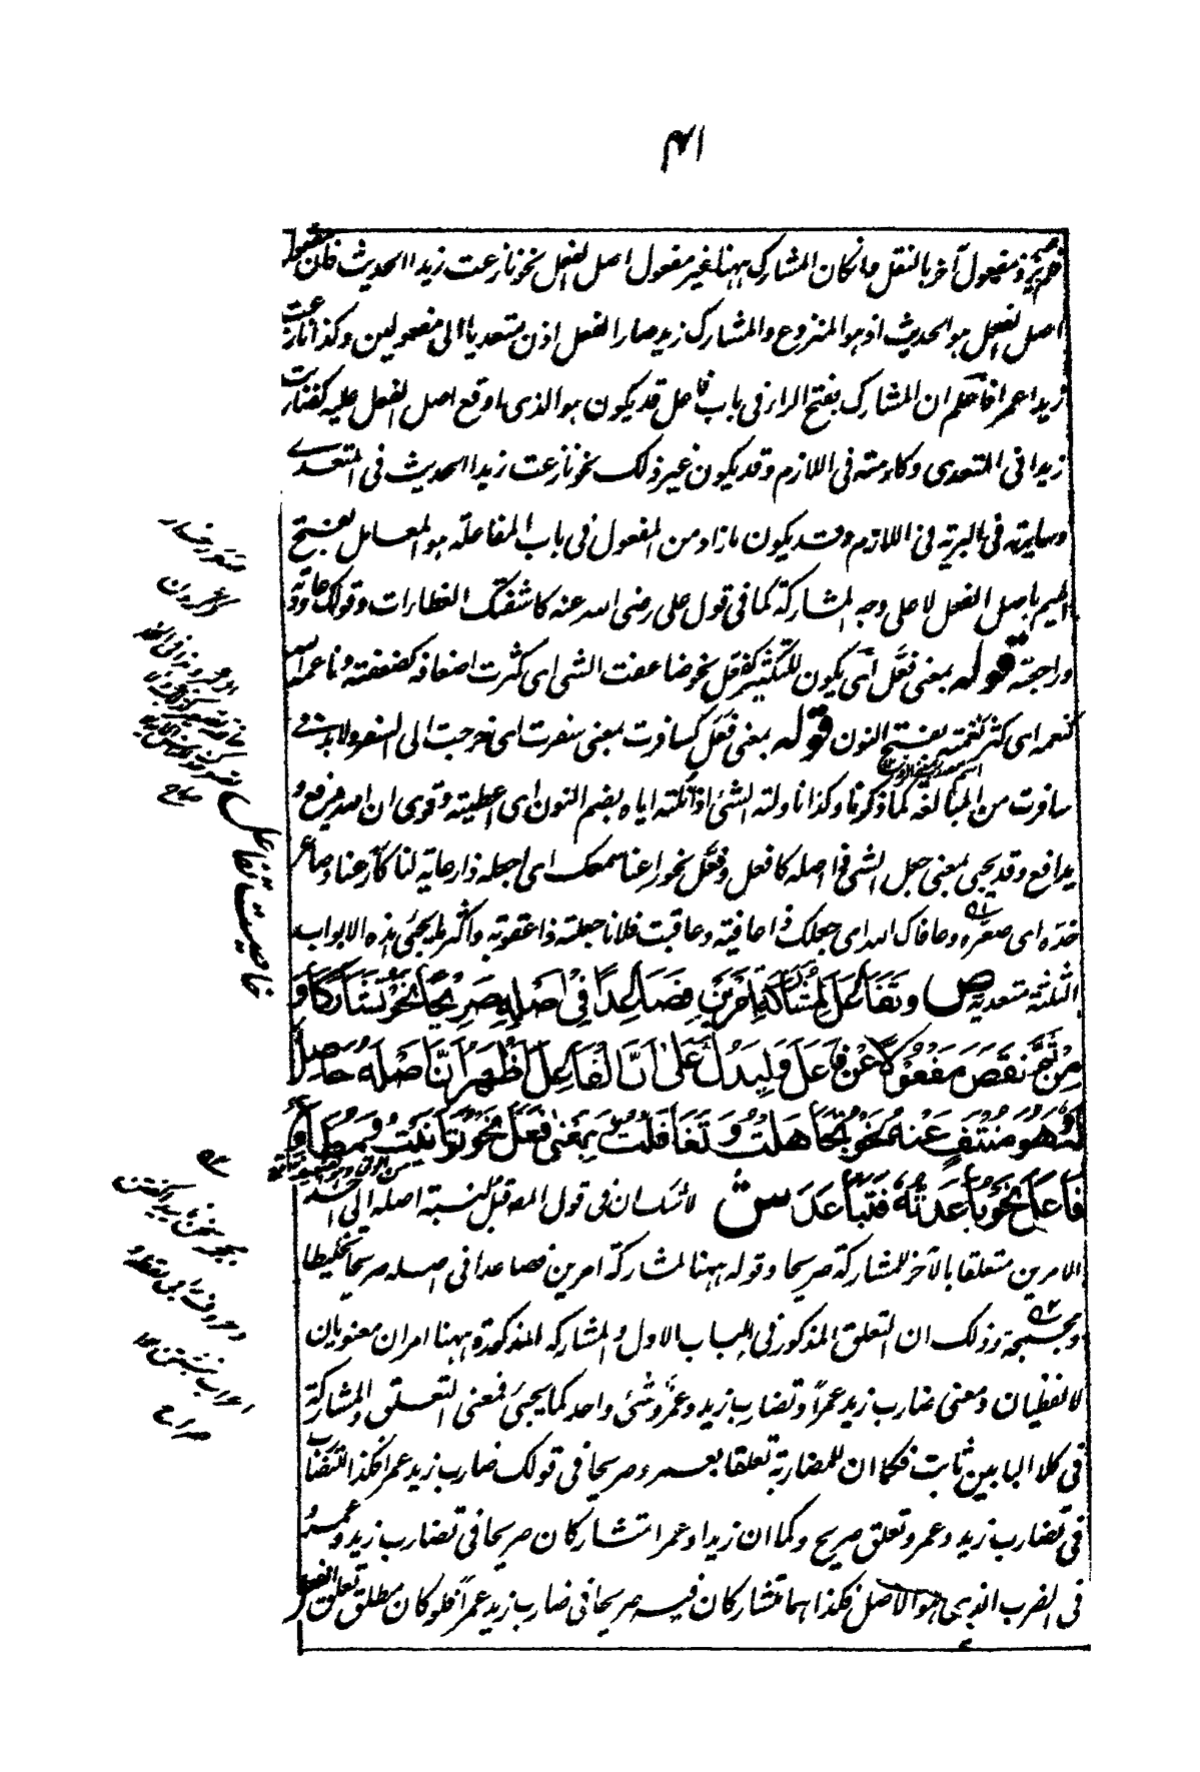 ۴۱
ومفعول آخر بالنقل وانكان المشارك ههنا غير مفعول اصل الفعل نحو نازعت زيدا الحديث فان مفعول
اصل الفعل هو الحديث اذ هو المنزوع والمشارك زيد صار الفعل اذن متعديا الى مفعولين وكذا نازعت
زيدا عمرا فاعلم ان المشارك بفتح الراء فى باب فاعل قد يكون هو الذى اوقع اصل الفعل عليه كضاربت
زيدا فى المتعدى وكارمته فى اللازم وقد يكون غير ذلك نحو نازعت زيدا الحديث فى المتعدى
وسايرته فى البرية فى اللازم وقد يكون ما زاد من المفعول فى باب المفاعلة هو المعامل بفتح
الميم باصل الفعل لا على وجه المشاركة كما فى قول على رضى الله عنه كاشفتك الغطارات وقولك عاودته
وراجعته قوله بمعنى فعّل اى يكون للتكثير كفعّل نحو ضاعفت الشى اى كثرت اضعافه كضعفته وناعمه الله
كنعمه اى كثر نعمته بفتح النون قوله بمعنى فعل كسافرت بمعنى سفرت اى خرجت الى السفر ولا بد فى
سافرت من المبالغة كما ذكرنا وكذا ناولته الشئ اذا نلته اياه بضم النون اى اعطيته وقرى ان الله يدفع و
يدافع وقد يجيء بمعنى جعل الشى ذا اصله كافعل وفعّل نحو راعنا سمعك اى اجعله ذا رعاية لنا كارعنا وصاعر
خدّه اى صعّره وعافاك الله اى جعلك ذا عافية وعاقبت فلانا جعلته ذا عقوبة واكثر ما يجئ هذه الابواب
الثلثة متعدية ص وَتَفَاعَلَ لِمُشَارَكَةِ اَمْرَيْنِ فَصَاعِدًا فِى اَصْلِهِ صَرِيْحًا نَحْوُ تَشَارَكَا وَ
مِنْ ثَمَّ نَقَصَ مَفْعُوْلًا عَنْ فَاعَلَ وَلِيَدُلَّ عَلٰى اَنَّ الْفَاعِلَ اَظْهَرَ اَنَّ اَصْلَهُ حَاصِلٌ
لَهُ وَهُوَ مُنْتَفٍ عَنْهُ نَحْوُ تَجَاهَلْتُ وَتَغَافَلْتُ وَبِمَعْنٰى فَعَلَ نَحْوُ تَوَانَيْتُ وَمُطَاوِعُ
فَاعَلَ نَحْوُ بَاعَدْتُهُ فَتَبَاعَدَ ش لا شك ان فى قول المص قبل لنسبة اصله الى احد
الامرين متعلقا بالآخر للمشاركة صريحا وقوله ههنا لمشاركة امرين فصاعدا فى اصله صريحا تخليطا
ومجمجة وذلك ان التعلق المذكور فى الباب الاول والمشاركة المذكورة ههنا امران معنويان
لا لفظيان ومعنى ضارب زيد عمرًا وتضارب زيد وعمرو شئ واحد كما يجئ فمعنى التعلق والمشاركة
فى كلا البابين ثابت فكما ان للمضاربة تعلقا بعمرو صريحا فى قولك ضارب زيد عمرا فكذا للتضارب
فى تضارب زيد وعمرو تعلق صريح وكما ان زيدا وعمرا متشاركان صريحا فى تضارب زيد وعمرو
فى الضرب الذى هو الاصل فكذا هما متشاركان فيه صريحا فى ضارب زيد عمرًا فلو كان مطلق تعلق الفعل
خاصيت تفاعل
صراح
صراح